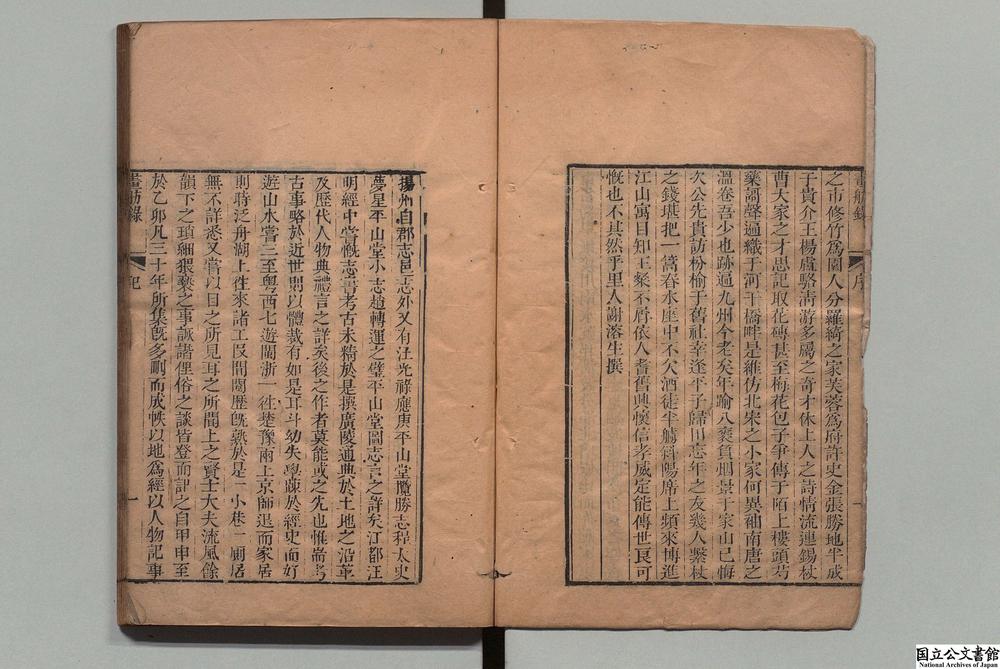 之市修竹爲園人分羅綺之家芙蓉爲府許史金張勝地半成
于貴介王楊盧駱淸游多屬之奇才休上人之詩情流連錫杖
曹大家之才思記取花磚甚至梅花包子爭傳于陌上樓頭芍
藥謌聲遍織于河干橋畔是雖仿北宋之小家何異袖南唐之
溫卷吾少也跡遍九州今老矣年踰八袠負烟景于家山已悔
次公先貴訪枌榆于舊社幸逢平子歸田志年之友幾人繫杖
之錢堪把一篙春水座中不欠酒徒半艣斜陽席上頻來博進
江山寓目知王粲不屑依人耆舊興懷信孝威定能傳世良可
慨也不其然乎里人謝溶生撰
畫舫錄 序
揚州自郡志邑志外又有汪光祿應庚平山堂攬勝志程太史
夢星平山堂小志趙轉運之璧平山堂圖志言之詳矣江都汪
明經中嘗慨志書考古未精於是撰廣陵通典於土地之沿革
及歷代人物典禮言之詳矣後之作者莫能或之先也惟尚考
古事略於近世則以體裁有如是耳斗幼失學疎於經史而好
遊山水嘗三至粤西七遊閩浙一往楚豫兩上京師退而家居
則時泛舟湖上往來諸工段間閱歷旣熟於是一小巷一廁居
無不詳悉又嘗以目之所見耳之所聞上之賢士大夫流風餘
韻下之瑣細猥褻之事詼諧俚俗之談皆登而記之自甲申至
於乙卯凡三十年所集旣多刪而成帙以地爲經以人物記事
畫舫錄 記 一
国立公文書館
National Archives of Japan